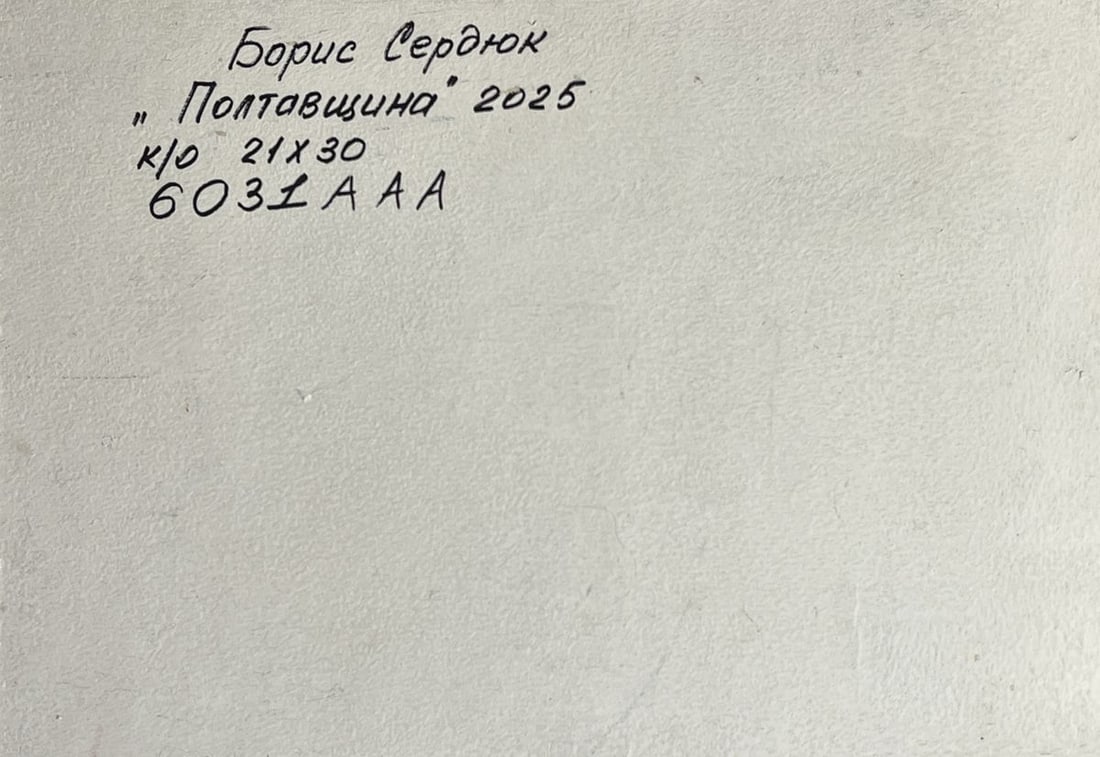 Борис Сердюк
„Полтавщина" 2025
к/о 21х30
6031 А А А